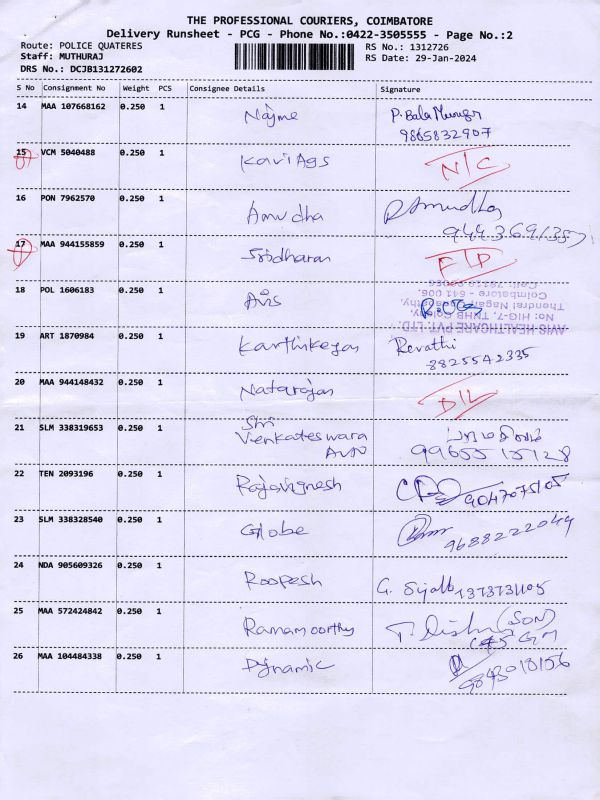 THE PROFESSIONAL COURIERS, COIMBATORE
Delivery Runsheet - PCG - Phone No.:0422-3505555 - Page No.:2
Route: POLICE QUATERES
RS No.: 1312726
Staff: MUTHURAJ
RS Date: 29-Jan-2024
DRS No.: DCJB131272602
S No Consignment No Weight PCS Consignee Details Signature
14 MAA 107668162 0.250 1 Najme P. Bala Murugr
9865832907
15 VCM 5040488 0.250 1 Kavi Ags N/C
16 PON 7962570 0.250 1 Anudha
17 MAA 944155859 0.250 1 Sridharan
18 POL 1606183 0.250 1 Avis
AVIS HEALTHCARE PVT. LTD.
No: HIG-7, TNHB Colony,
Coimbatore - 641 006.
19 ART 1870984 0.250 1 Karthikeyan Revathi
8825542335
20 MAA 944148432 0.250 1 Natarajan D/L
21 SLM 338319653 0.250 1 Shri
Venkateswara
Auto
22 TEN 2093196 0.250 1 Rajavignesh 9047075105
23 SLM 338328540 0.250 1 Globe 9688222044
24 NDA 905609326 0.250 1 Roopesh
25 MAA 572424842 0.250 1 Ramamoorthy (SON)
26 MAA 104484338 0.250 1 Dynamic 9843018156